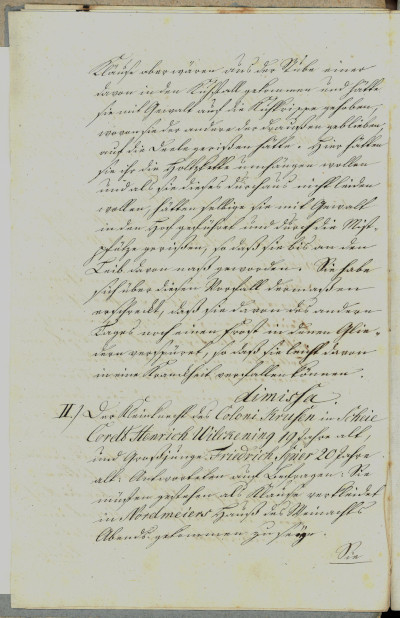 Kläuse aber wären aus der Stube einer
davon in den Kuhstall gekommen und hätte
sie mit Gewalt auf die Kuhkrippe gehoben,
wovon sie der andere der draußen geblieben
auf die Deele gerißen hätte. Hier hätten
sie ihr die Holzkette umhängen wollen
und als sie dieses durchaus nicht leiden
wollen, hätten selbige sie mit Gewalt
in den Hof geführt und durch die Mist-
pfütze gerißen, so daß sie bis an den
Leib davon naß geworden. Sie habe
sich über diesen Vorfall dermaßen
erschreckt, daß sie davon des andern
Tages noch einen Frost in ihren Glie-
dern verspüret, so daß sie leicht davon
in eine Krankheit verfallen können.
dimissa.
II.) Der Kleinknecht des Coloni Krusen in Scheie
Cordt Henrich Wilckening 19 Jahre alt,
und Großjunge Friedrich 20 Jahre
alt. Antworteten auf Befragen: Sie
müßten gestehen als Kläuse verkleidet
in Nordmeiers Hauß des Weinachts
Abends gekommen zu seyn.
Sie